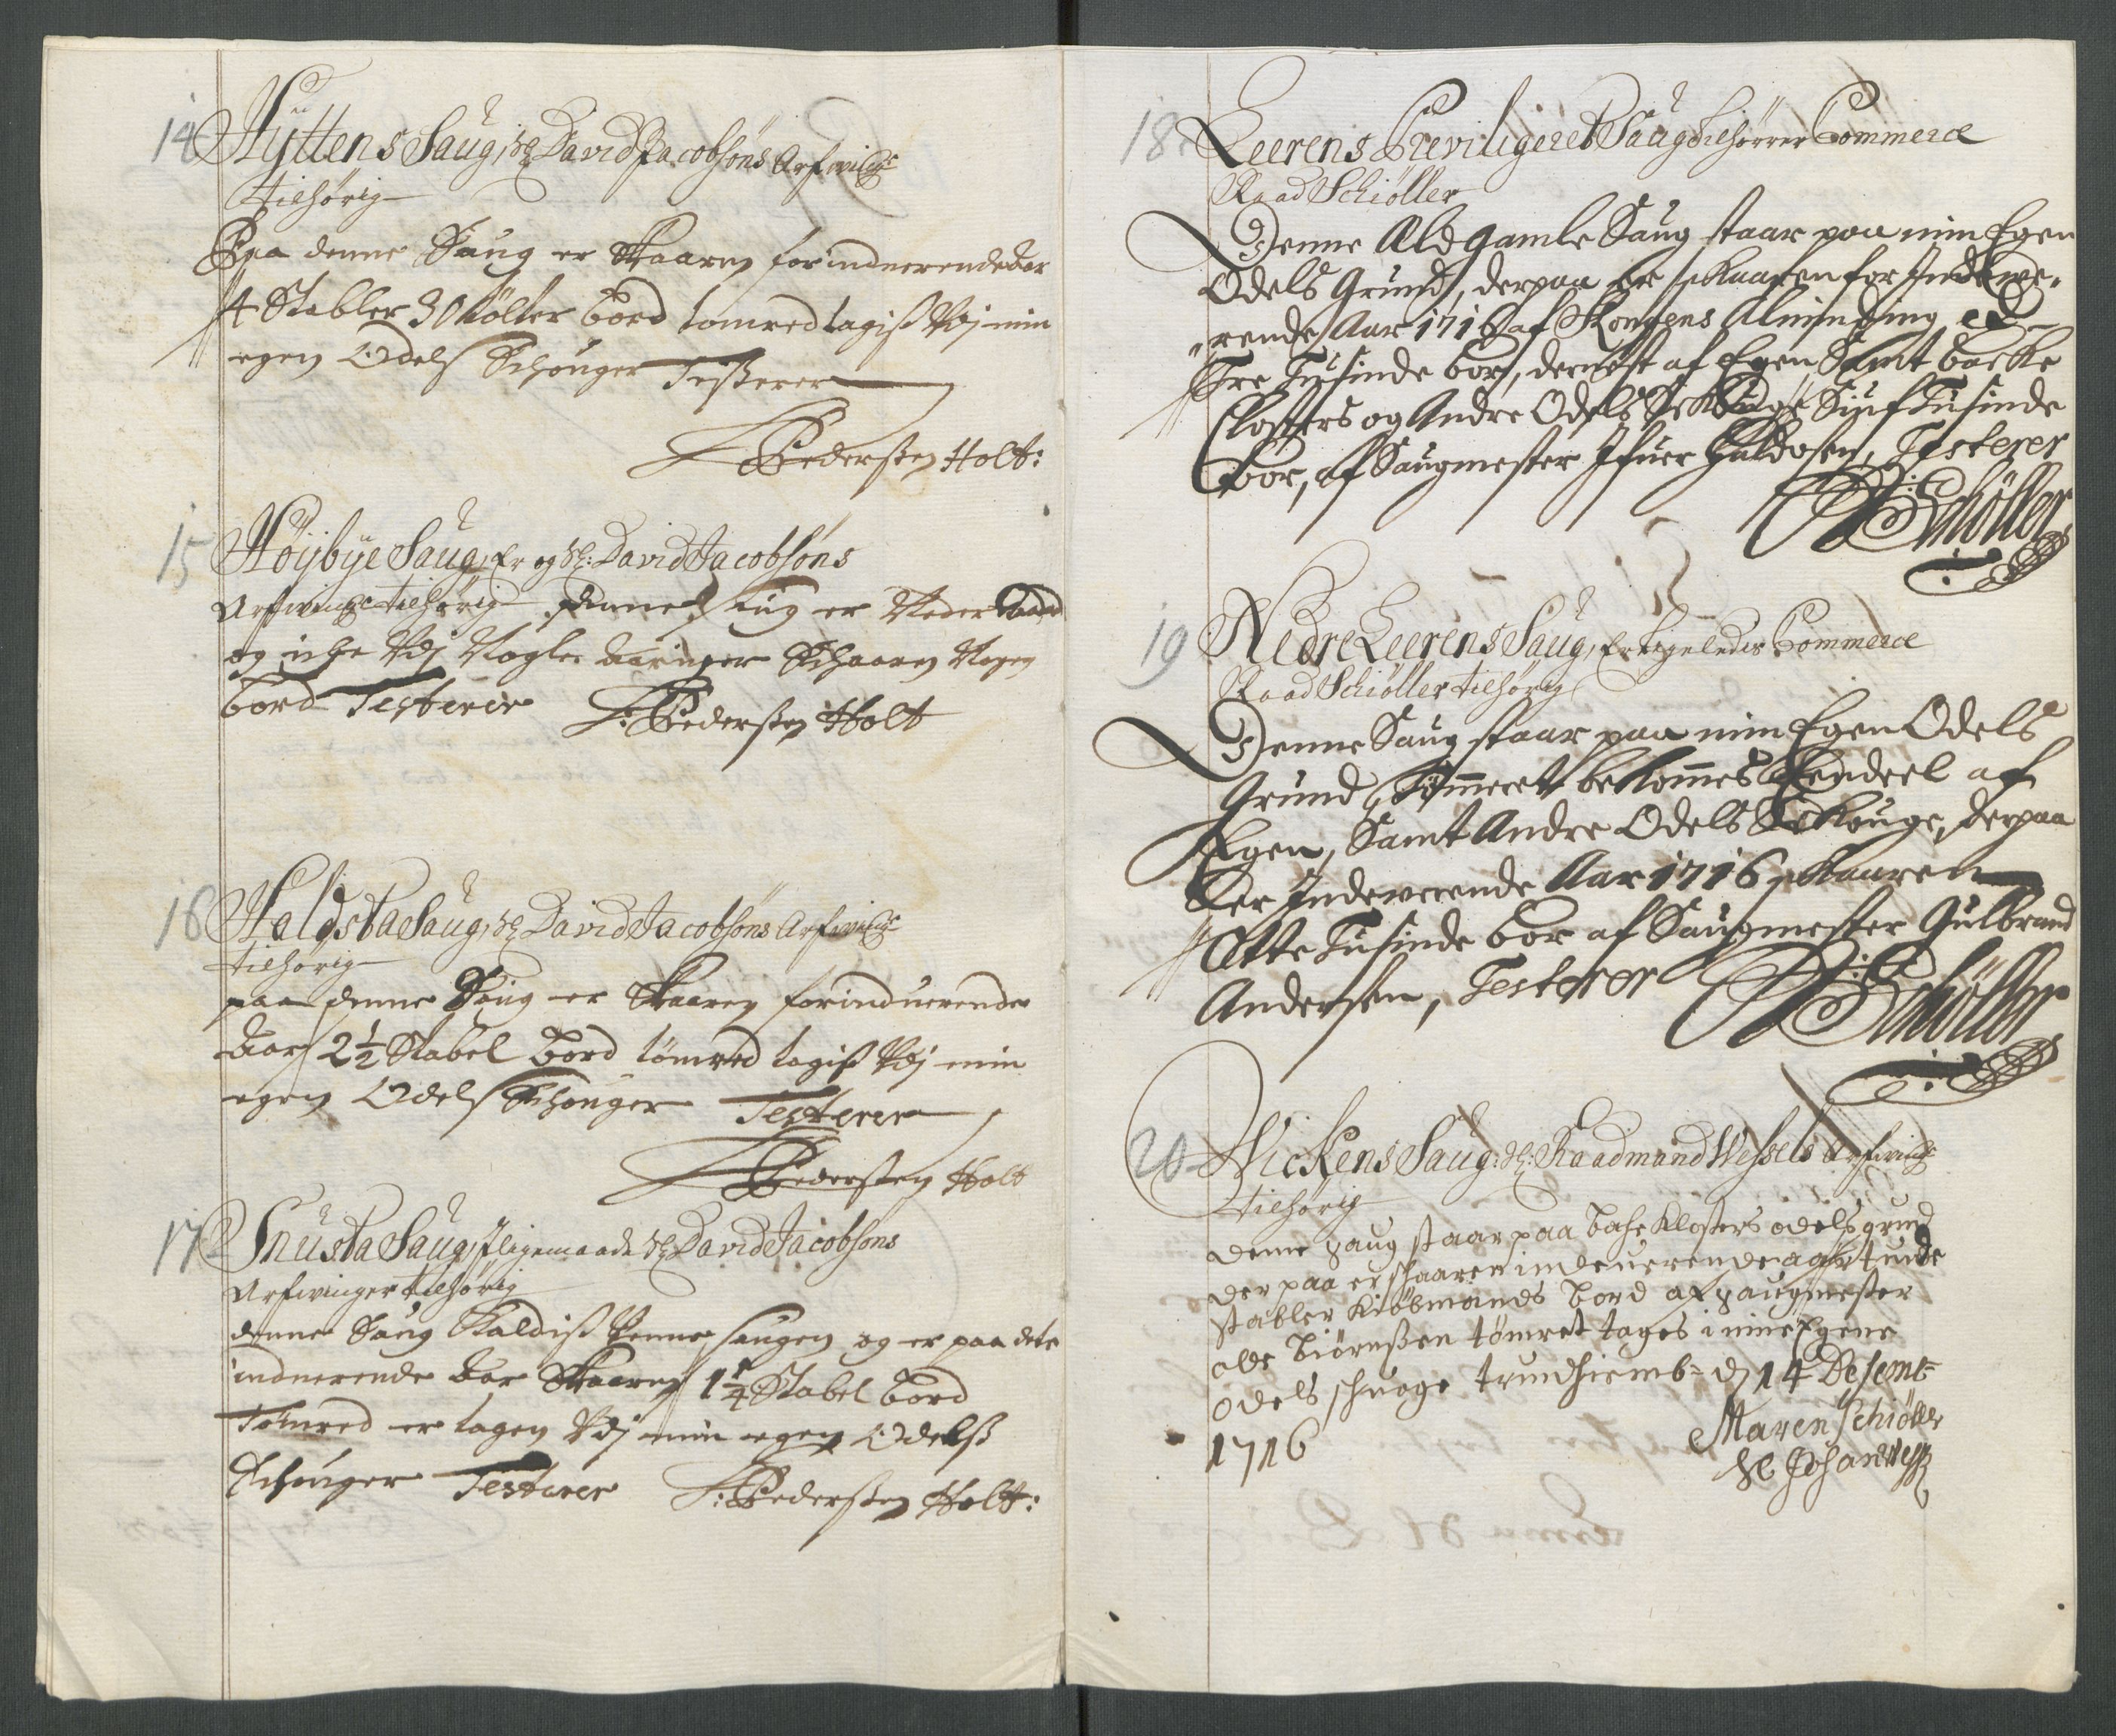 14
Hyttens Saug, Sl: David Jacobsøns Arfwing:
tilhørig
Paa denne Saug er Skaaren forinduerende Aar
4 Stabler 30 Tölter bord tømred tagiß Udj min
egen Odels Schouger Testerer
Pederßen Holt:
15
Høijbye Saug, Er og Sl: David Jacobsøns
Arfwinge tilhørig denne Saug er Neder
og iche Udj Nogle Aaringer Schaaren Nogen
bord Testerer Pederßen Holt
16
Haldsta Saug, Sl: David Jacobsøns Arfwing:
tilhørig
paa denne Saug er Skaaren forinduerende
Aar 2½ Stabel bord tømred tagiß Udj min
egen Odels Schouger Testerer
Pederßen Holt
17
Snusta Saug, Jligemaade Sl: David Jacobsøns
Arfwinger tilhørig
denne Saug Kaldiß saugen og er paa dete
induerende Aar Skaaren 1¼ Stabel bord
Tømred er tagen Udj min egen Odelß
Schouger Testerer Pederßen Holt:
18
Leerens Previligeret Saug tilhørrer Commerce
Raad Schiøller
Denne Ald gamle Saug staar paa min Egen
Odels Grund, derpaa er skaaren for Indewe-
rende Aar 1716 af Kongens Alminding
Tre Tusinde bor, dernest af Egen Samt backe
Closters og Andre Odels Skouge Siuf Tusinde
bor, af Saugmester Ifuer Haldosen, Testerer
Schøller
19
Nedre Leerens Saug, Er ligeledes Commerce
Raad Schiøller tilhørig
Denne Saug staar paa min Egen Odels
Grund, Tømmeret bekommes Eendeel af
Egen, Samt Andre Odels Skouge, derpaa
Er Indewerende Aar 1716 skaaren
Otte Tusinde bor af Saugmester Gulbrand
Andersen, Testerer Schøller
20
Wickens Saug: Sl: Raadmand Wessels Arfwing:
tilhørig
denne saug staar paa bache Klosters odels grund
der paa er schaaren indeuerende aar tuede
stabler Kiöbmands bord af saugmester
ole biörnßen tømret tages i mine Egene
odels schuoge trundhiemb d 14 Desembr
1716 Maren Schiøller
Sl Johan Weßels